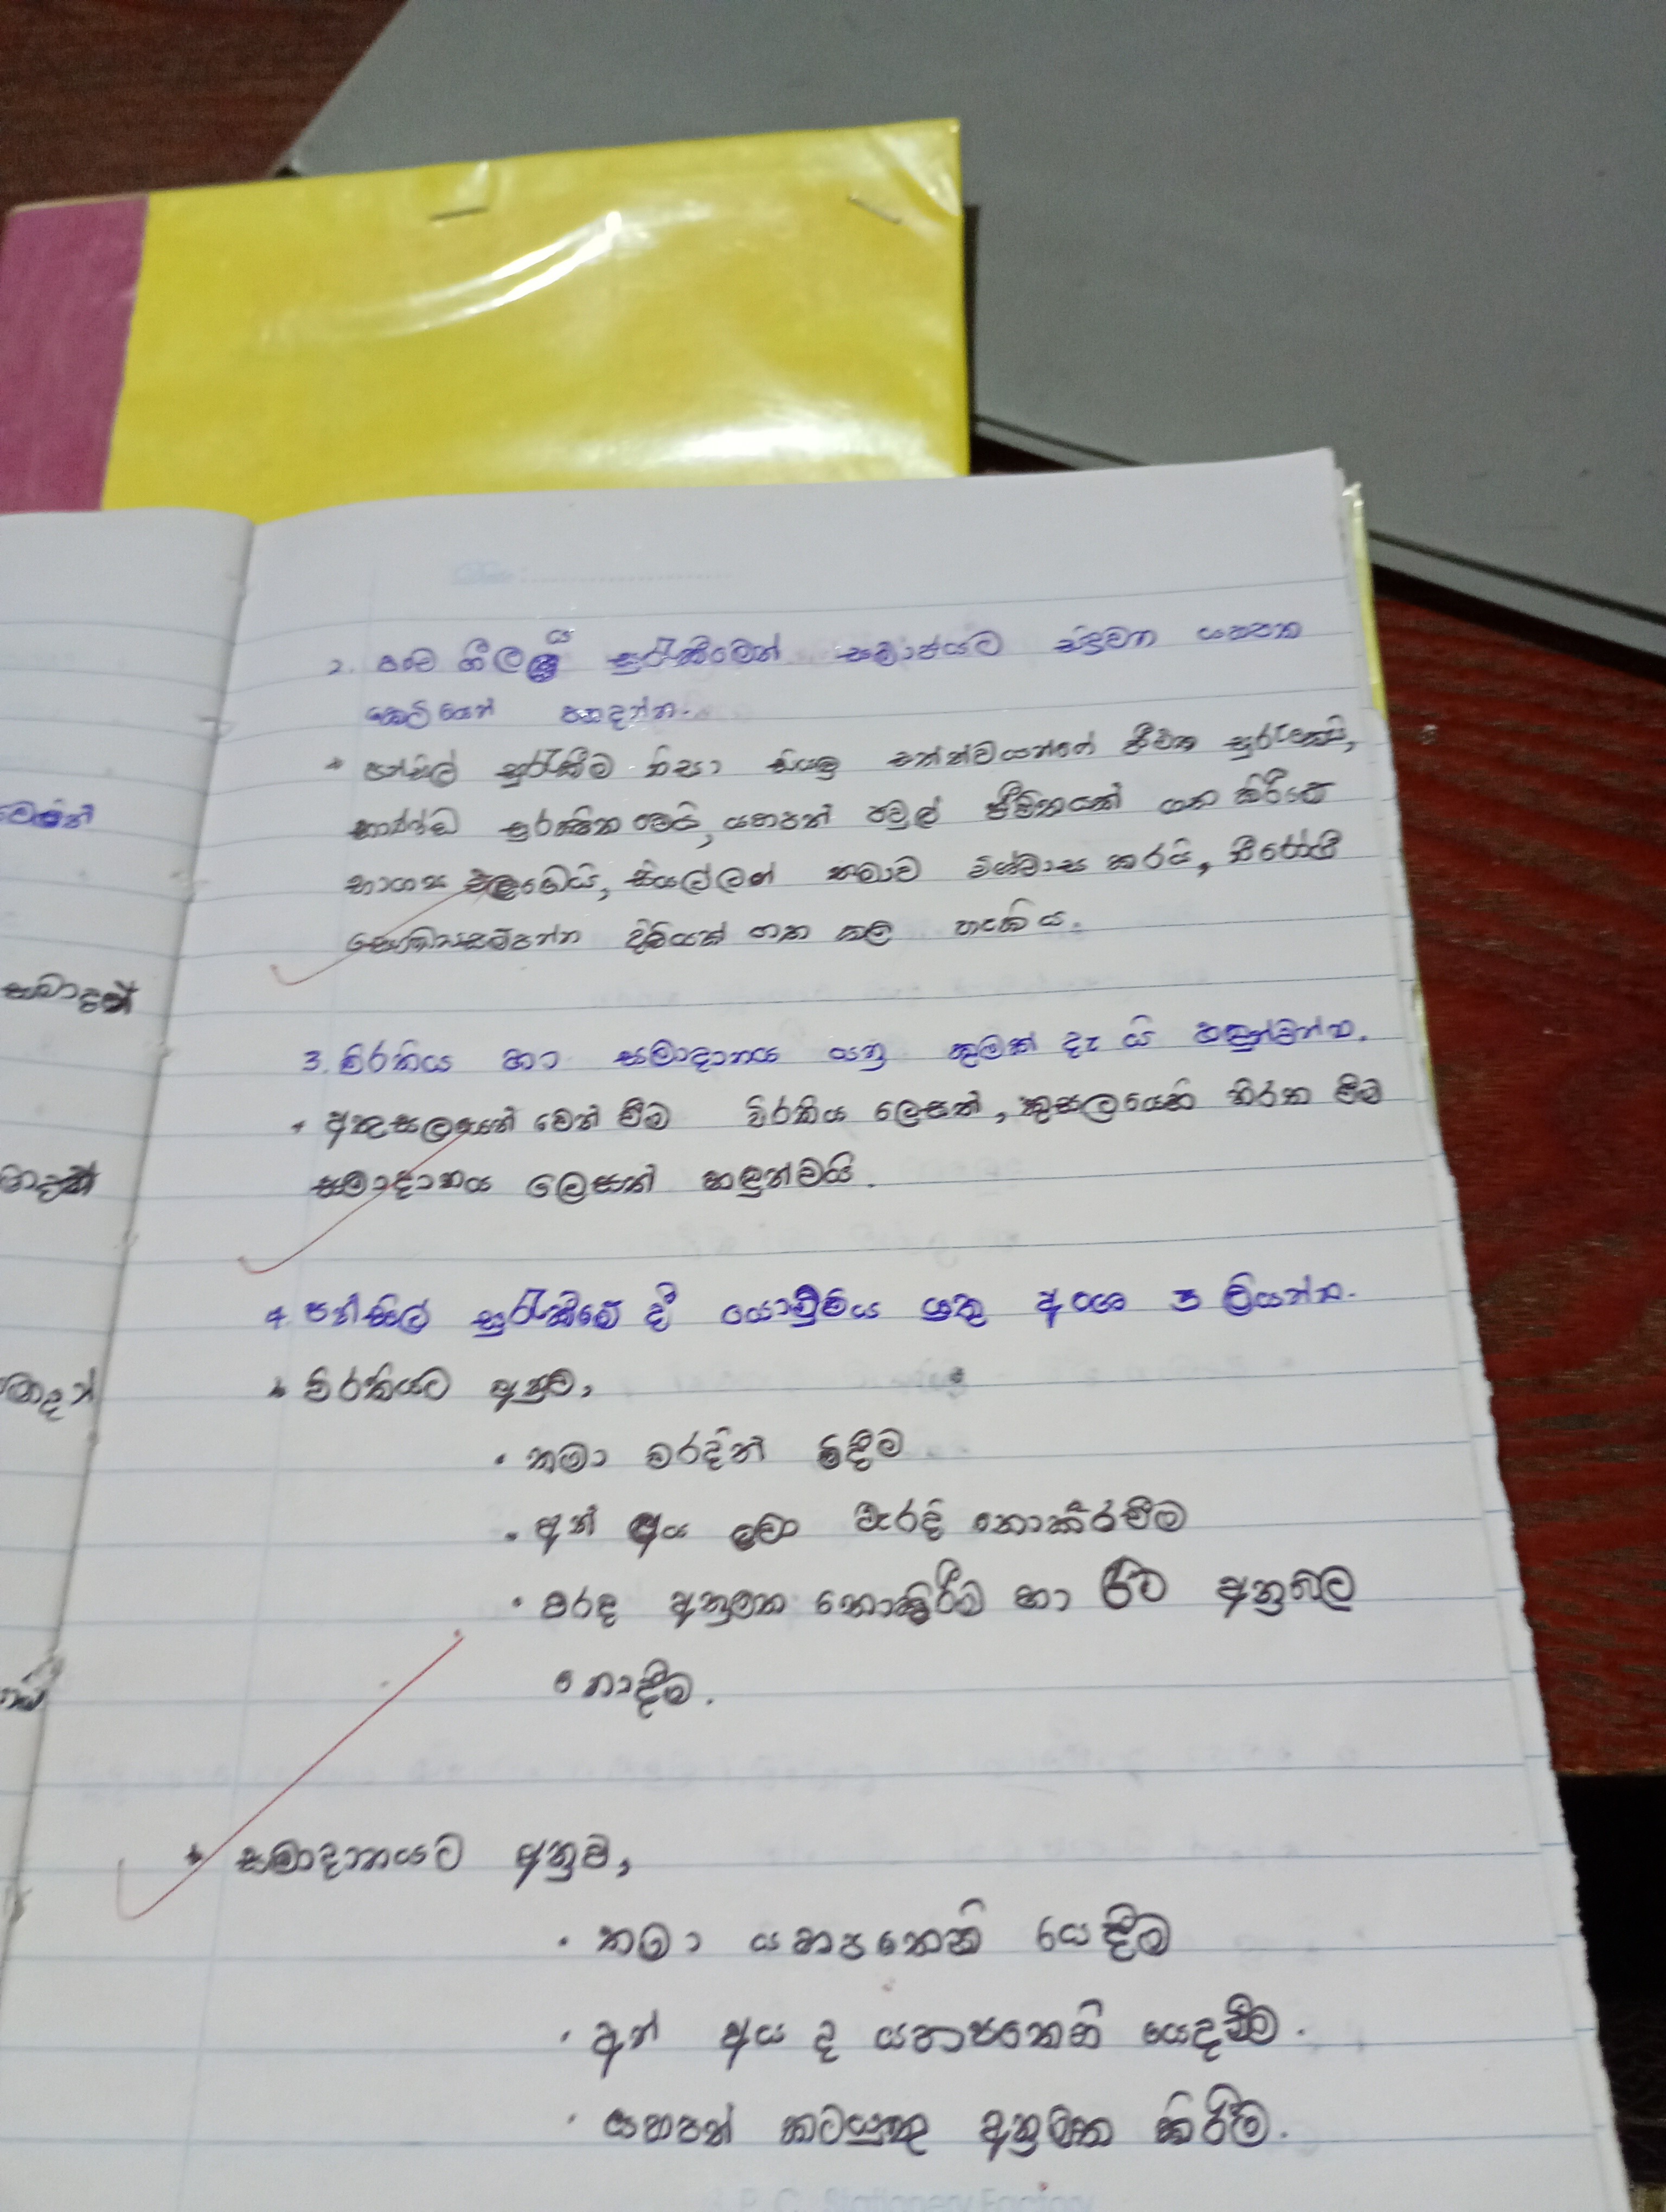 2. පංච ශීලය සුරැකීමෙන් සමාජයට සිදුවන යහපත
කෙටියෙන් පහදන්න.
පන්සිල් සුරැකීම නිසා සියලු සත්ත්වයන්ගේ ජීවිත සුරැකෙයි,
භාණ්ඩ සුරක්ෂිත වෙයි, යහපත් පවුල් ජීවිතයක් ගත කිරීමේ
භාග්‍ය ලැබෙයි, සියල්ලන් තමාව විශ්වාස කරයි, නීරෝගී
දිවියක් ගත කල හැකිය.
3. විරතිය හා සමාදානය යනු කුමක් දැ යි හඳුන්වන්න.
අකුසලයෙන් වෙන් වීම විරතිය ලෙසත්, කුසලයෙහි නිරත වීම
සමාදානය ලෙසත් හඳුන්වයි.
4. පන්සිල් සුරැකීමේ දී යොමුවිය යුතු අංශ 3 ලියන්න.
විරතියට අනුව,
• තමා වරදින් මිදීම
• අන් අය ලවා වැරදි නොකරවීම
• වරද අනුමත නොකිරීම හා ඊට අනුබල
නොදීම.
සමාදානයට අනුව,
• තමා යහපතෙහි යෙදීම
• අන් අය ද යහපතෙහි යෙදවීම.
• යහපත් කටයුතු අනුමත කිරීම.
සමාදන්